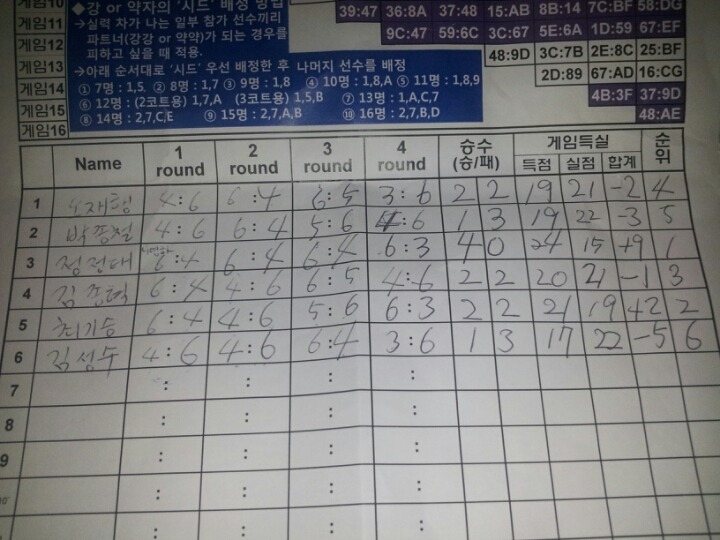 게임10
게임11
게임12
게임13
게임14
게임15
게임16
◆강 or 약자의 '시드' 배정 방법
→실력 차가 나는 일부 참가 선수끼리
파트너(강강 or 약약)가 되는 경우를
피하고 싶을 때 적용.
→아래 순서대로 '시드' 우선 배정한 후 나머지 선수를 배정
① 7명 : 1,5. ② 8명 : 1,7 ③ 9명 : 1,8 ④ 10명 : 1,8,A ⑤ 11명 : 1,8,9
⑥ 12명 : (2코트용) 1,7,A (3코트용) 1,5,B ⑦ 13명 : 1,A,C,7
⑧ 14명 : 2,7,C,E ⑨ 15명 : 2,7,A,B ⑩ 16명 : 2,7,B,D
39:47 36:8A 37:48 15:AB 8B:14 7C:BF 58:DG
9C:47 59:6C 3C:67 5E:6A 1D:59 67:EF
48:9D 3C:7B 2E:8C 25:BF
2D:89 67:AD 16:CG
4B:3F 37:9D
48:AE
Name 1 round 2 round 3 round 4 round 승수 (승/패) 게임득실 득점 실점 합계 순위
1 4:6 6:4 6:5 3:6 2 2 19 21 -2 4
2 박종철 4:6 6:4 5:6 4:6 1 3 19 22 -3 5
3 정정대 6:4 6:4 6:4 6:3 4 0 24 15 +9 1
4 6:4 4:6 6:5 4:6 2 2 20 21 -1 3
5 최기승 6:4 4:6 5:6 6:3 2 2 21 19 +2 2
6 김성수 4:6 4:6 6:4 3:6 1 3 17 22 -5 6
7 : : : :
8 : : : :
9 : : : :
10 : : : :
: : :